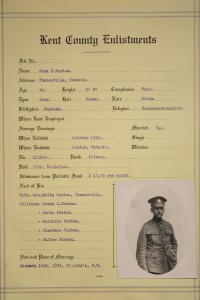 Kent County Enlistments
File No.
Name John T. Burton.
Address Thamesville, Ontario.
Age Height 5' 8" Complexion Fair.
Eyes Grey. Hair Brown. Race White.
Birthplace England. Religion Congregationalist.
Where Last Employed
Average Earnings Married Yes.
When Enlisted October 1915. Single
Where Enlisted London, Ontario. Widower
No. Rank Private.
Unit Battalion.
Allowance from Patriotic Fund $ per month.
Next of Kin
Wife, Mrs. Burton, Thamesville.
Children, Frank J. Burton.
" Burton.
" Marjorie Burton.
" Burton.
" Walter Burton.
Date and Place of Marriage.
January 14th, St. John's, N.B.